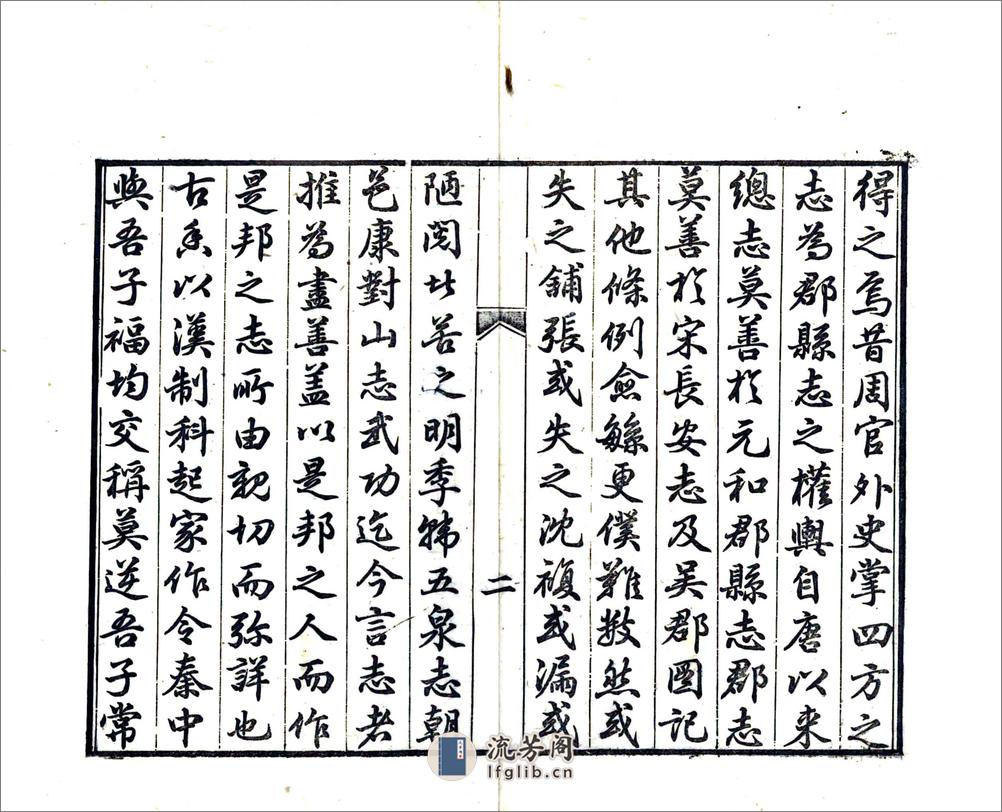 得之焉昔周官外史掌四方之
志為郡縣志之權輿自唐以来
總志莫善於元和郡縣志郡志
莫善於宋長安志及吴郡圖記
其他條例僉繇更僕難數然或
失之鋪張或失之沈複或漏或
二
陋閱者苦之明季韩五泉志朝
邑康對山志武功迄今言志者
推為盡善盖以是邦之人而作
是邦之志所由親切而弥詳也
古以漢制科起家作令秦中
與吾子福均交稱莫逆吾子常
流芳阁
lfglib.cn